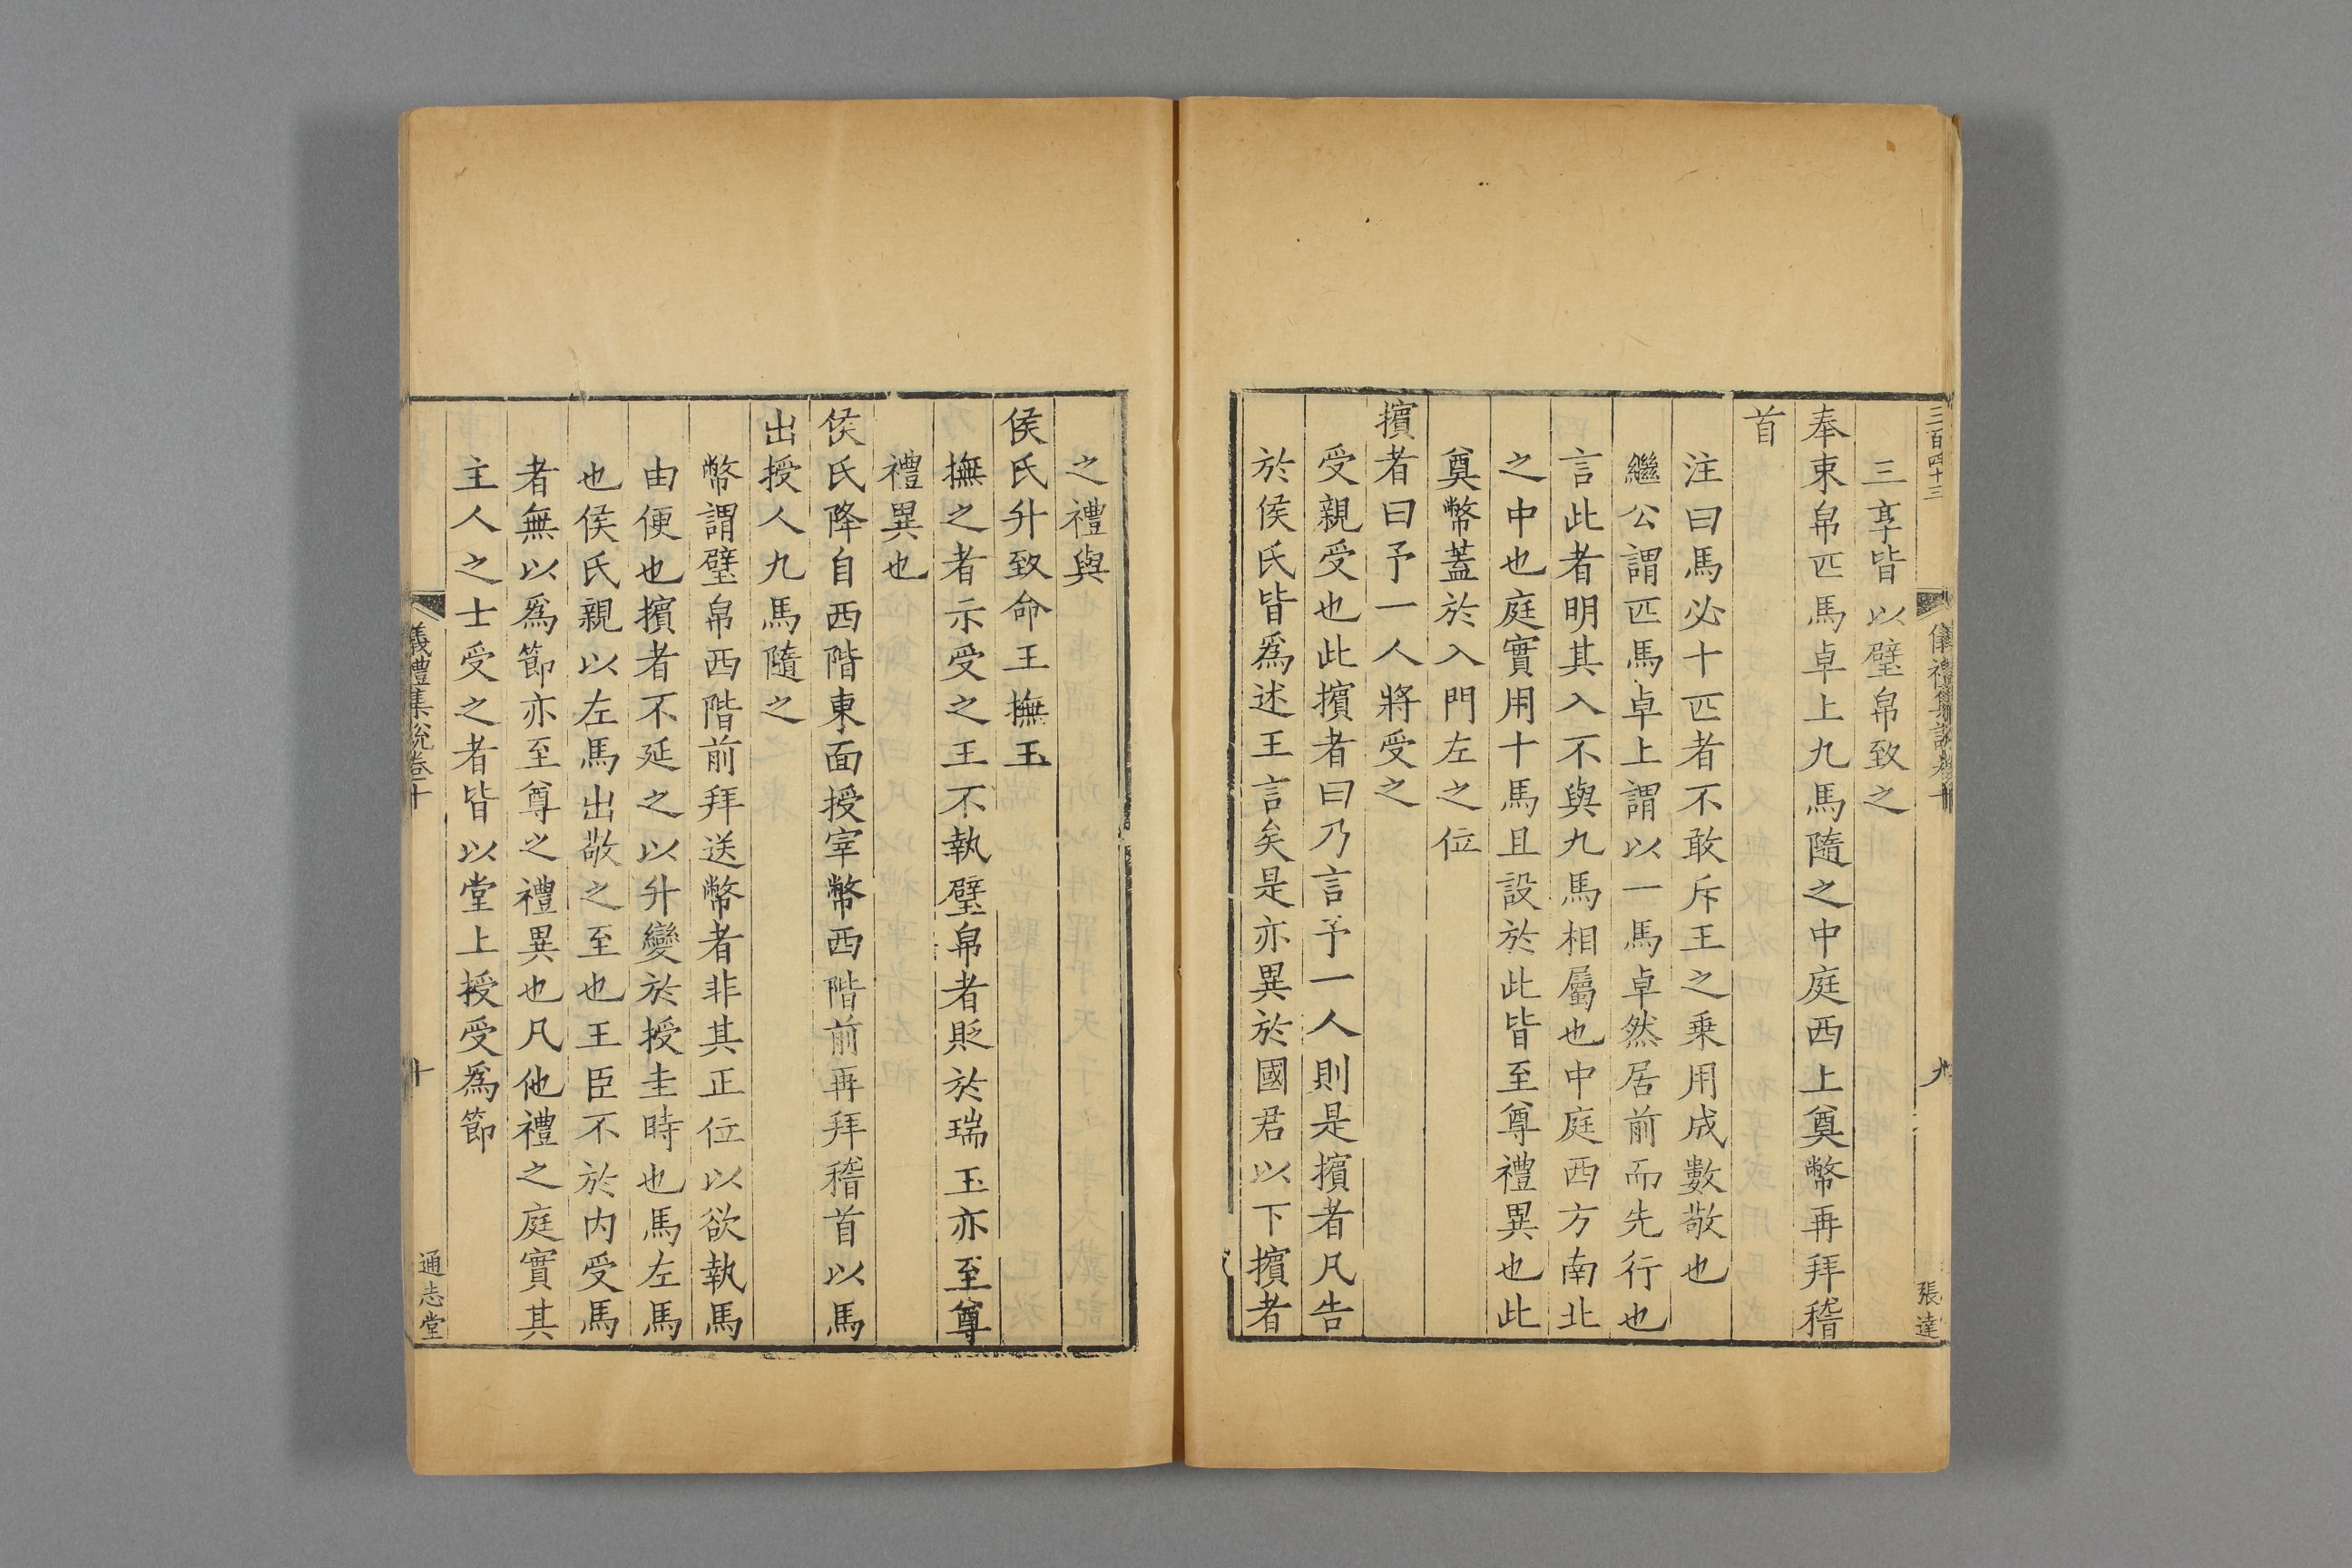 三百四十三
儀禮集說卷十
九
張達
三享皆以璧帛致之
奉束帛匹馬卓上九馬隨之中庭西上奠幣再拜稽
首
注曰馬必十匹者不敢斥王之乘用成數敬也
繼公謂匹馬卓上謂以一馬卓然居前而先行也
言此者明其入不與九馬相屬也中庭西方南北
之中也庭實用十馬且設於此皆至尊禮異也此
奠幣蓋於入門左之位
擯者曰予一人將受之
受親受也此擯者曰乃言予一人則是擯者凡告
於侯氏皆爲述王言矣是亦異於國君以下擯者
之禮與
侯氏升致命王撫玉
撫之者示受之王不執璧帛者貶於瑞玉亦至尊
禮異也
侯氏降自西階東面授宰幣西階前再拜稽首以馬
出授人九馬隨之
幣謂璧帛西階前拜送幣者非其正位以欲執馬
由便也擯者不延之以升變於授圭時也馬左馬
也侯氏親以左馬出敬之至也王臣不於内受馬
者無以爲節亦至尊之禮異也凡他禮之庭實其
主人之士受之者皆以堂上授受爲節
儀禮集說卷十
十
通志堂